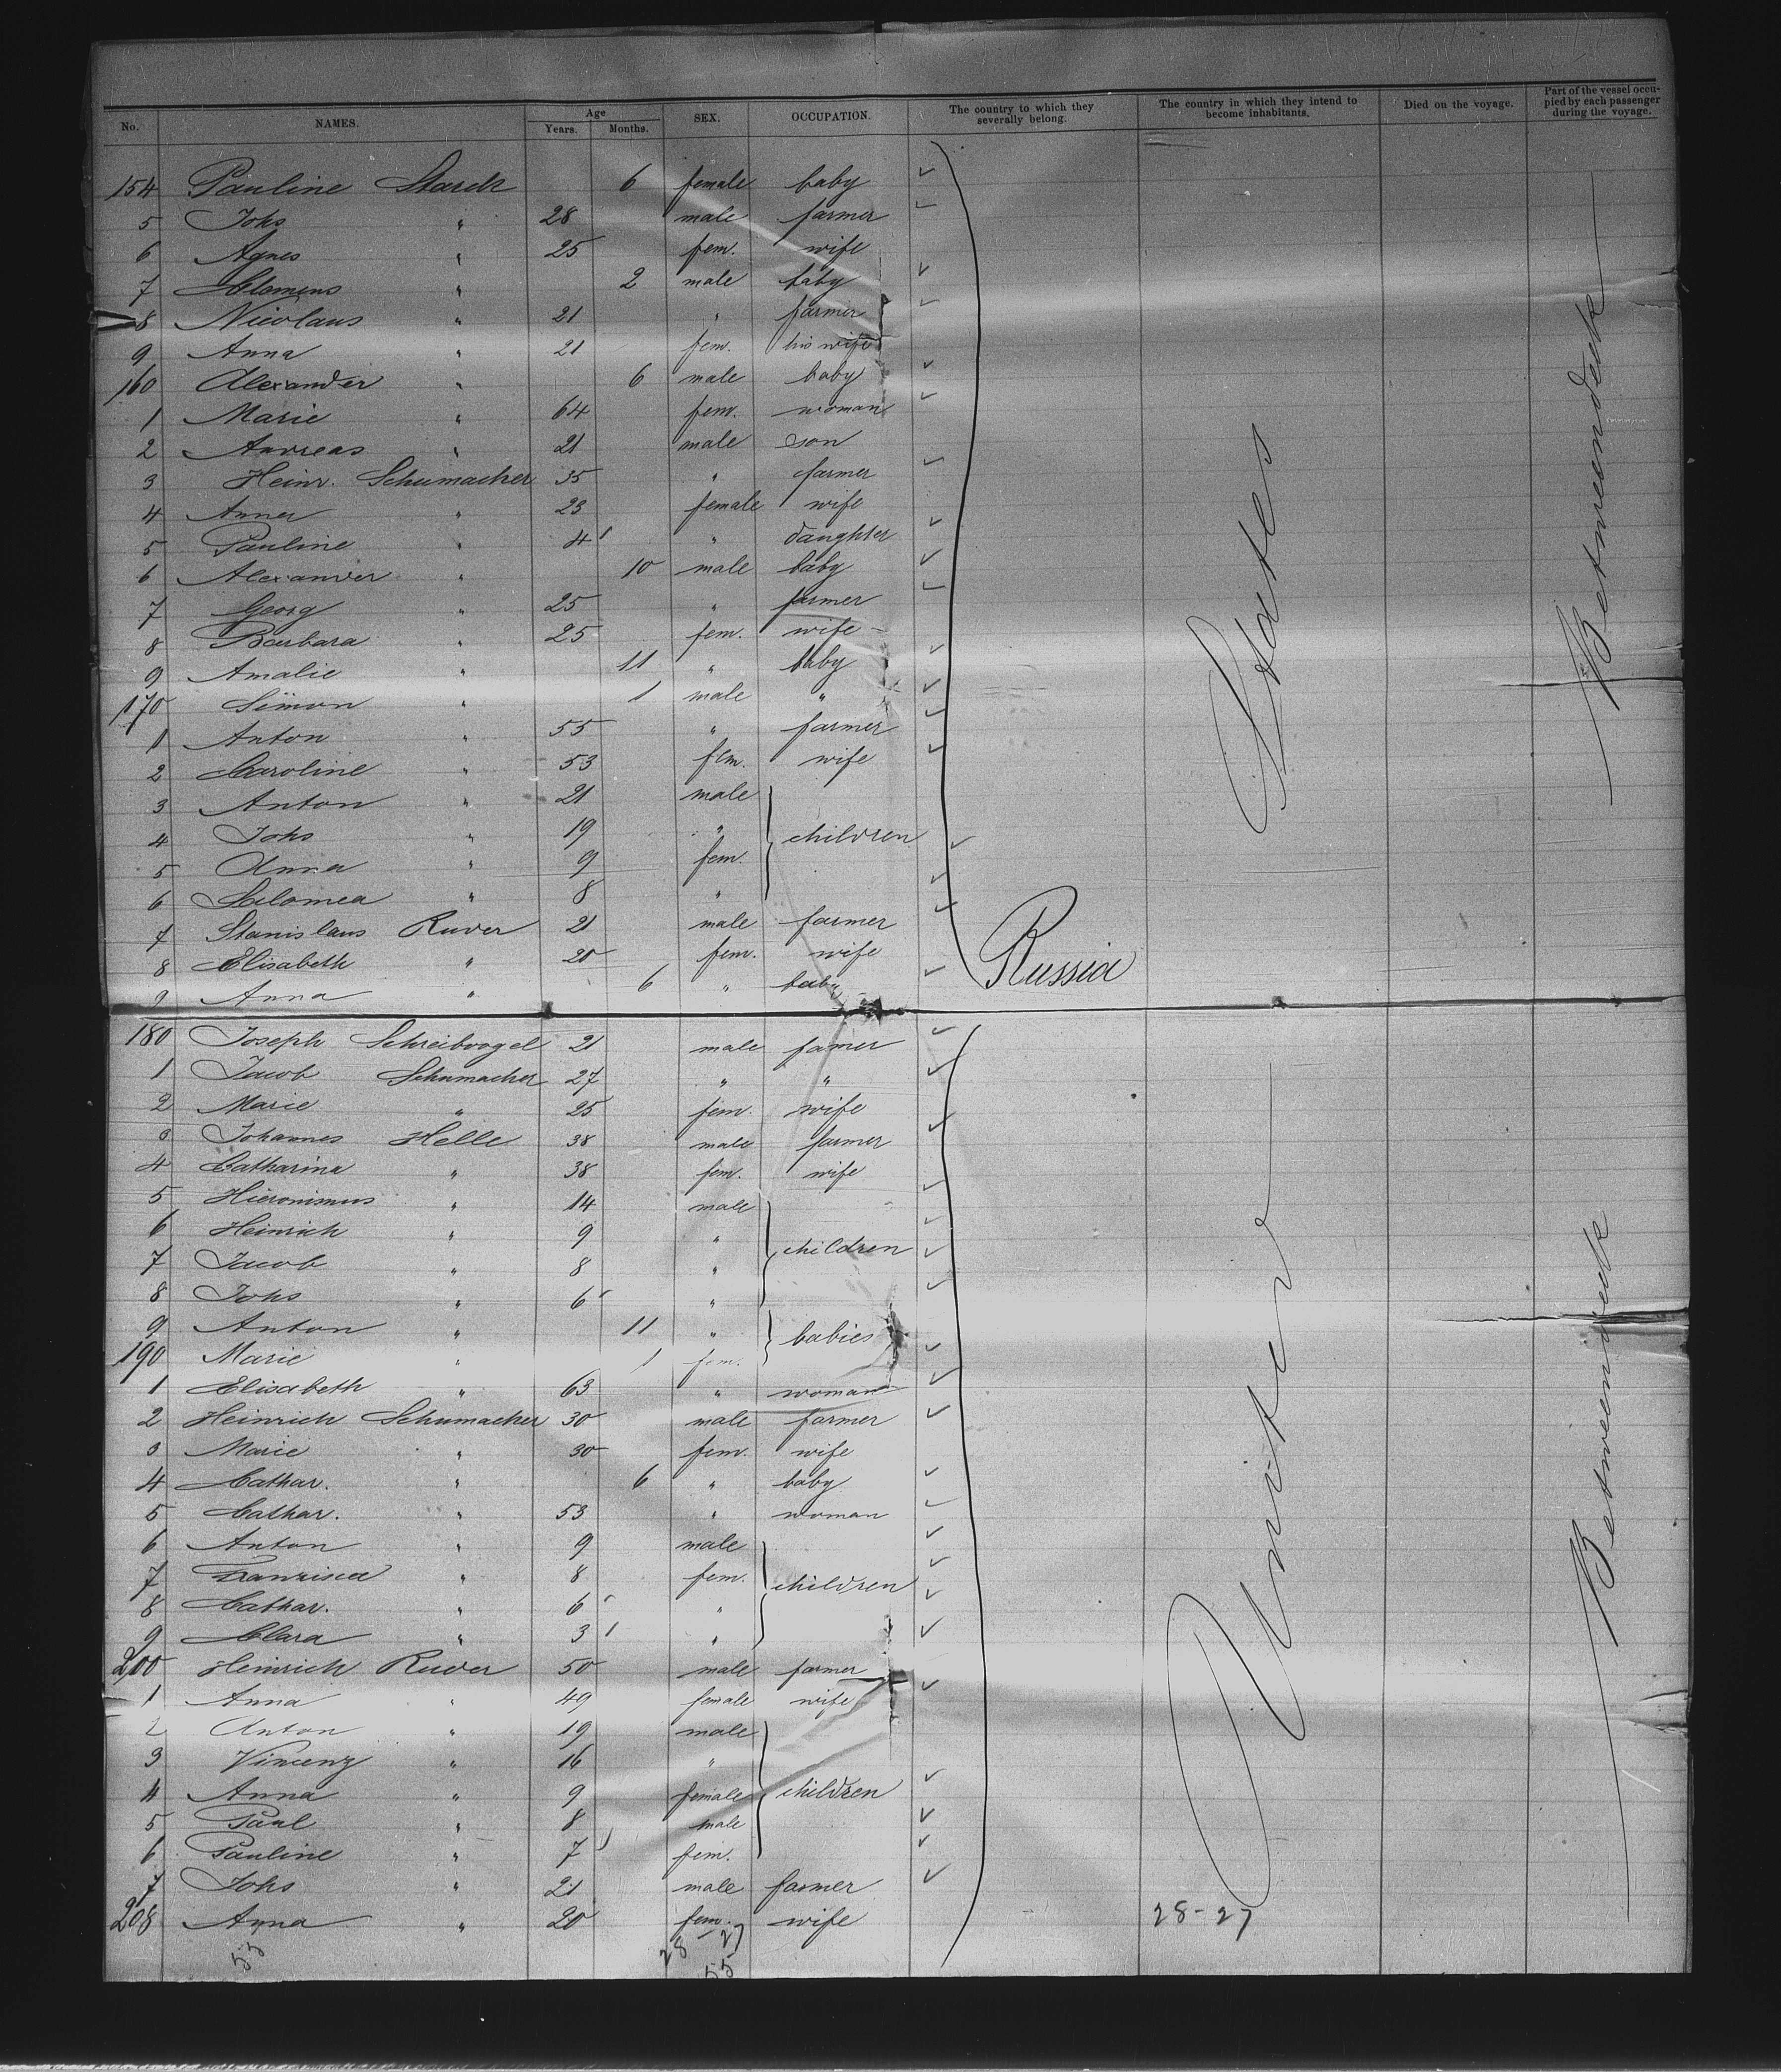 No. NAMES. Age Years. Months. SEX. OCCUPATION. The country to which they severally belong. The country in which they intend to become inhabitants. Died on the voyage. Part of the vessel occupied by each passenger during the voyage.
154 Pauline Starck 6 female baby
5 Johs " 28 male farmer
6 Agnes " 25 fem. wife
7 Clemens " 2 male baby
8 Nicolaus " 21 " farmer
9 Anna " 21 fem. his wife
160 Alexander " 6 male baby
1 Marie " 64 fem. woman
2 Andreas " 21 male son
3 Heinr. Schumacher 35 " farmer
4 Anna " 23 female wife
5 Pauline " 4 " daughter
6 Alexander " 10 male baby
7 Georg " 25 " farmer
8 Barbara " 25 fem. wife
9 Amalie " 11 " baby
170 Simon " 1 male "
1 Anton " 55 " farmer
2 Caroline " 53 fem. wife
3 Anton " 21 male
4 Johs " 19 " children
5 Anna " 9 fem.
6 Salomea " 8 "
7 Stanislaus Ruder 21 male farmer
8 Elisabeth " 20 fem. wife
9 Anna " 6 " baby
Russia
180 Joseph Schreibvogel 21 male famer
1 Jacob Schumacher 27 " "
2 Marie " 25 fem. wife
3 Johannes Helle 38 male farmer
4 Catharina " 38 fem. wife
5 Hieronimus " 14 male
6 Heinrich " 9 " children
7 Jacob " 8 "
8 Johs " 6 "
9 Anton " 11 " babies
190 Marie " 1 fem.
1 Elisabeth " 63 " woman
2 Heinrich Schumacher 30 male farmer
3 Marie " 30 fem. wife
4 Cathar. " 6 " baby
5 Cathar. " 53 " woman
6 Anton " 9 male
7 Franzisca " 8 fem. children
8 Cathar. " 6 "
9 Clara " 3 "
200 Heinrich Ruder 50 male farmer
1 Anna " 49 female wife
2 Anton " 19 male
3 Vincenz " 16 "
4 Anna " 9 female children
5 Paul " 8 male
6 Pauline " 7 fem.
7 Johs " 21 male farmer
208 Anna " 20 fem. wife
United States
Betweendeck
Betweendeck
28-27
28 27
55
55